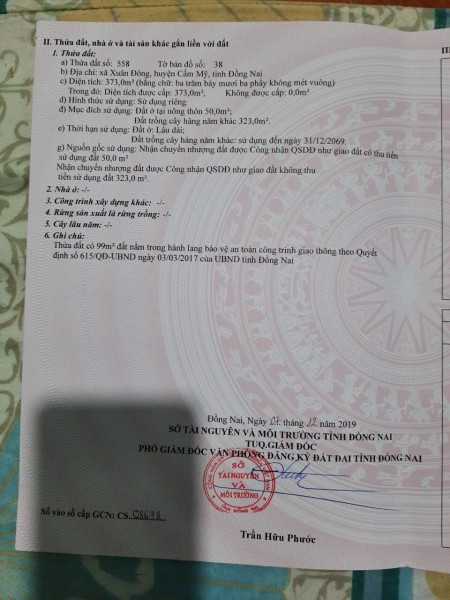 II. Thửa đất, nhà ở và tài sản khác gắn liền với đất
1. Thửa đất:
a) Thửa đất số: 558 Tờ bản đồ số: 38
b) Địa chỉ: xã Xuân Đông, huyện Cẩm Mỹ, tỉnh Đồng Nai
c) Diện tích: 373,0m² (bằng chữ: ba trăm bảy mươi ba phẩy không mét vuông)
Trong đó: Diện tích được cấp: 373,0m², Không được cấp: 0,0m²
d) Hình thức sử dụng: Sử dụng riêng
đ) Mục đích sử dụng: Đất ở tại nông thôn 50,0m²;
Đất trồng cây hàng năm khác 323,0m².
e) Thời hạn sử dụng: Đất ở: Lâu dài;
Đất trồng cây hàng năm khác: sử dụng đến ngày 31/12/2069.
g) Nguồn gốc sử dụng: Nhận chuyển nhượng đất được Công nhận QSDĐ như giao đất có thu tiền
sử dụng đất 50,0 m²
Nhận chuyển nhượng đất được Công nhận QSDĐ như giao đất không thu
tiền sử dụng đất 323,0 m².
2. Nhà ở: -/-
3. Công trình xây dựng khác: -/-
4. Rừng sản xuất là rừng trồng: -/-
5. Cây lâu năm: -/-
6. Ghi chú:
Thửa đất có 99m² đất nằm trong hành lang bảo vệ an toàn công trình giao thông theo Quyết
định số 615/QĐ-UBND ngày 03/03/2017 của UBND tỉnh Đồng Nai
Đồng Nai, Ngày 07 tháng 12 năm 2019
SỞ TÀI NGUYÊN VÀ MÔI TRƯỜNG TỈNH ĐỒNG NAI
TUQ.GIÁM ĐỐC
PHÓ GIÁM ĐỐC VĂN PHÒNG ĐĂNG KÝ ĐẤT ĐAI TỈNH ĐỒNG NAI
SỞ
TÀI NGUYÊN
VÀ
MÔI TRƯỜNG
Số vào sổ cấp GCN: CS 08698
Trần Hữu Phước